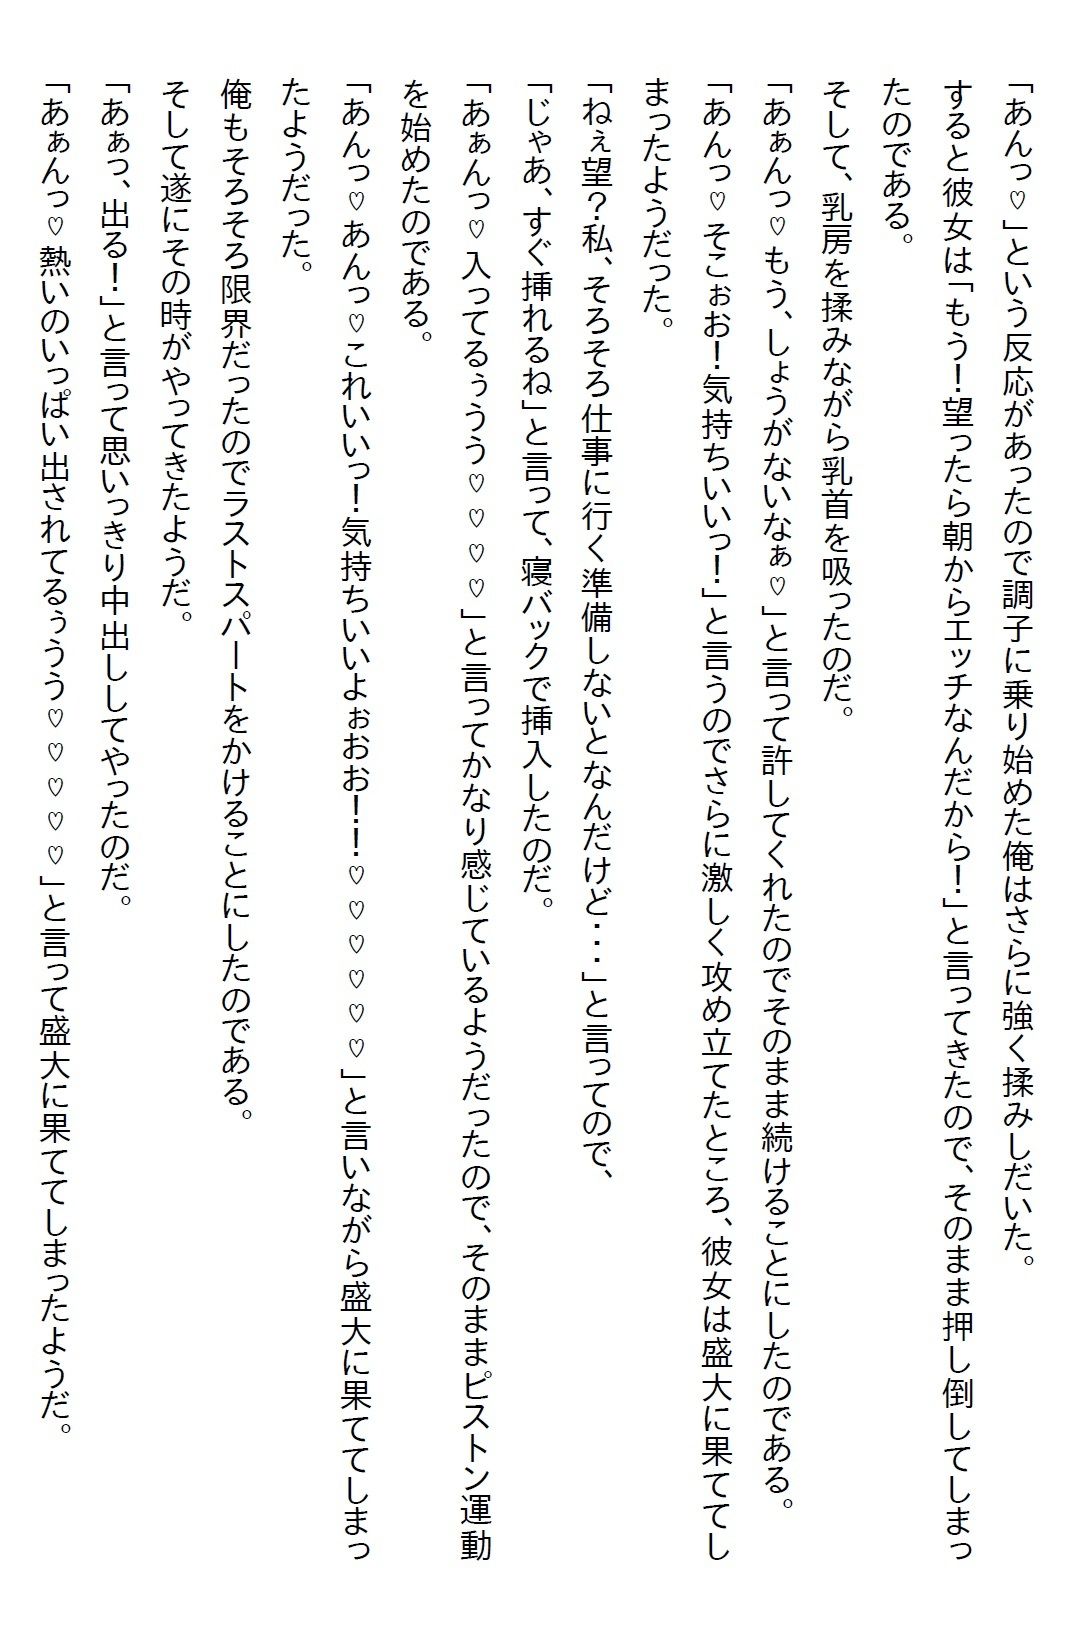 「あんっ♡」という反応があったので調子に乗り始めた俺はさらに強く揉みしだいた。
すると彼女は「もう！望ったら朝からエッチなんだから！」と言ってきたので、そのまま押し倒してしまっ
たのである。
そして、乳房を揉みながら乳首を吸ったのだ。
「あぁんっ♡もう、しょうがないなぁ♡」と言って許してくれたのでそのまま続けることにしたのである。
「あんっ♡そこぉお！気持ちいいっ！」と言うのでさらに激しく攻め立てたところ、彼女は盛大に果ててし
まったようだった。
「ねぇ望？私、そろそろ仕事に行く準備しないとなんだけど・・・」と言ってので、
「じゃあ、すぐ挿れるね」と言って、寝バックで挿入したのだ。
「あぁんっ♡入ってるぅうう♡♡♡♡」と言ってかなり感じているようだったので、そのままピストン運動
を始めたのである。
「あんっ♡あんっ♡これいいっ！気持ちいいよぉおお！！♡♡♡♡♡♡」と言いながら盛大に果ててしまっ
たようだった。
俺もそろそろ限界だったのでラストスパートをかけることにしたのである。
そして遂にその時がやってきたようだ。
「あぁっ、出る！」と言って思いっきり中出ししてやったのだ。
「あぁんっ♡熱いのいっぱい出されてるぅうう♡♡♡♡♡」と言って盛大に果ててしまったようだ。